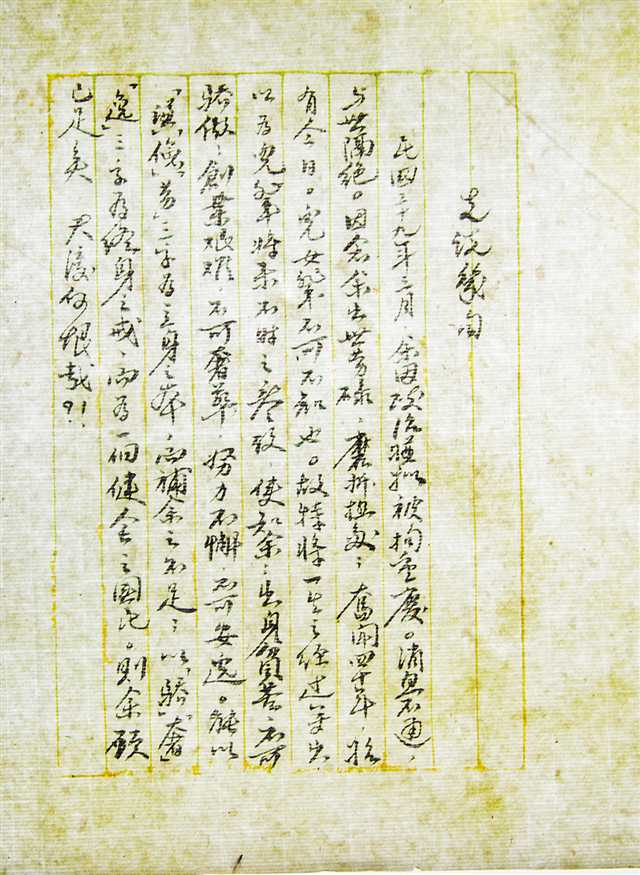 先说几句
民国三十九年三月，余因政治嫌拟被拘重庆。消息不通，
与世隔绝。因念余出世劳碌，磨折极多；奋闘四十年，始
有今日。儿女辈不可不知也。故特将一生之经过草出，
以为儿辈将来不时之参考，使知余：出身贫苦，不可
骄傲；创业艰难，不可奢华；努力不懈，不可安逸。能以
「谦」「俭」「劳」三字为立身之本，而补余之不足；以「骄」「奢」
「逸」三字为终身之戒，而为一個健全之国民。则余愿
已足矣，夫复何恨哉？！